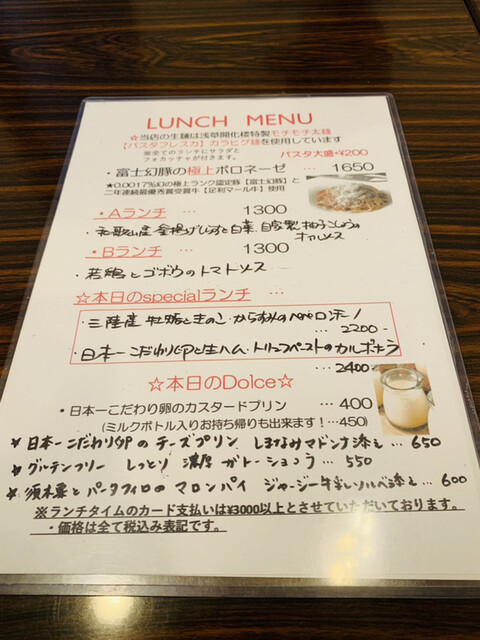 LUNCH MENU
☆当店の生麺は浅草開化楼特製モチモチ太麺
【パスタフレスカ】カラヒグ麺を使用しています
※全てのランチにサラダと
フォカッチャが付きます。
パスタ大盛+¥200
・富士幻豚の極上ボロネーゼ … 1650
★0.0017%幻の極上ランク認定豚【富士幻豚】と
二年連続最優秀賞受賞牛【足利マール牛】使用
・Aランチ … 1300
・和歌山産 釜揚げしらすと白菜、自家製柚子こしょうの
オイルソース
・Bランチ … 1300
・若鶏とゴボウのトマトソース
☆本日のspecialランチ
・三陸産 牡蛎ときのこ・からすみのペペロンチーノ
… 2200-
・日本一こだわり卵と生ハム、トリュフペーストのカルボナーラ
… 2400-
☆本日のDolce☆
・日本一こだわり卵のカスタードプリン … 400
(ミルクボトル入りお持ち帰りも出来ます!…450)
★ 日本一こだわり卵のチーズプリン しまなみマドンナ添え … 650
★ グルテンフリー しっとり 濃厚 ガトーショコラ … 550
★ 須木栗とパータフィロのマロンパイ ジャージー牛乳ソルベ添え … 600
※ランチタイムのカード支払いは¥3000以上とさせていただいております。
・価格は全て税込み表記です。